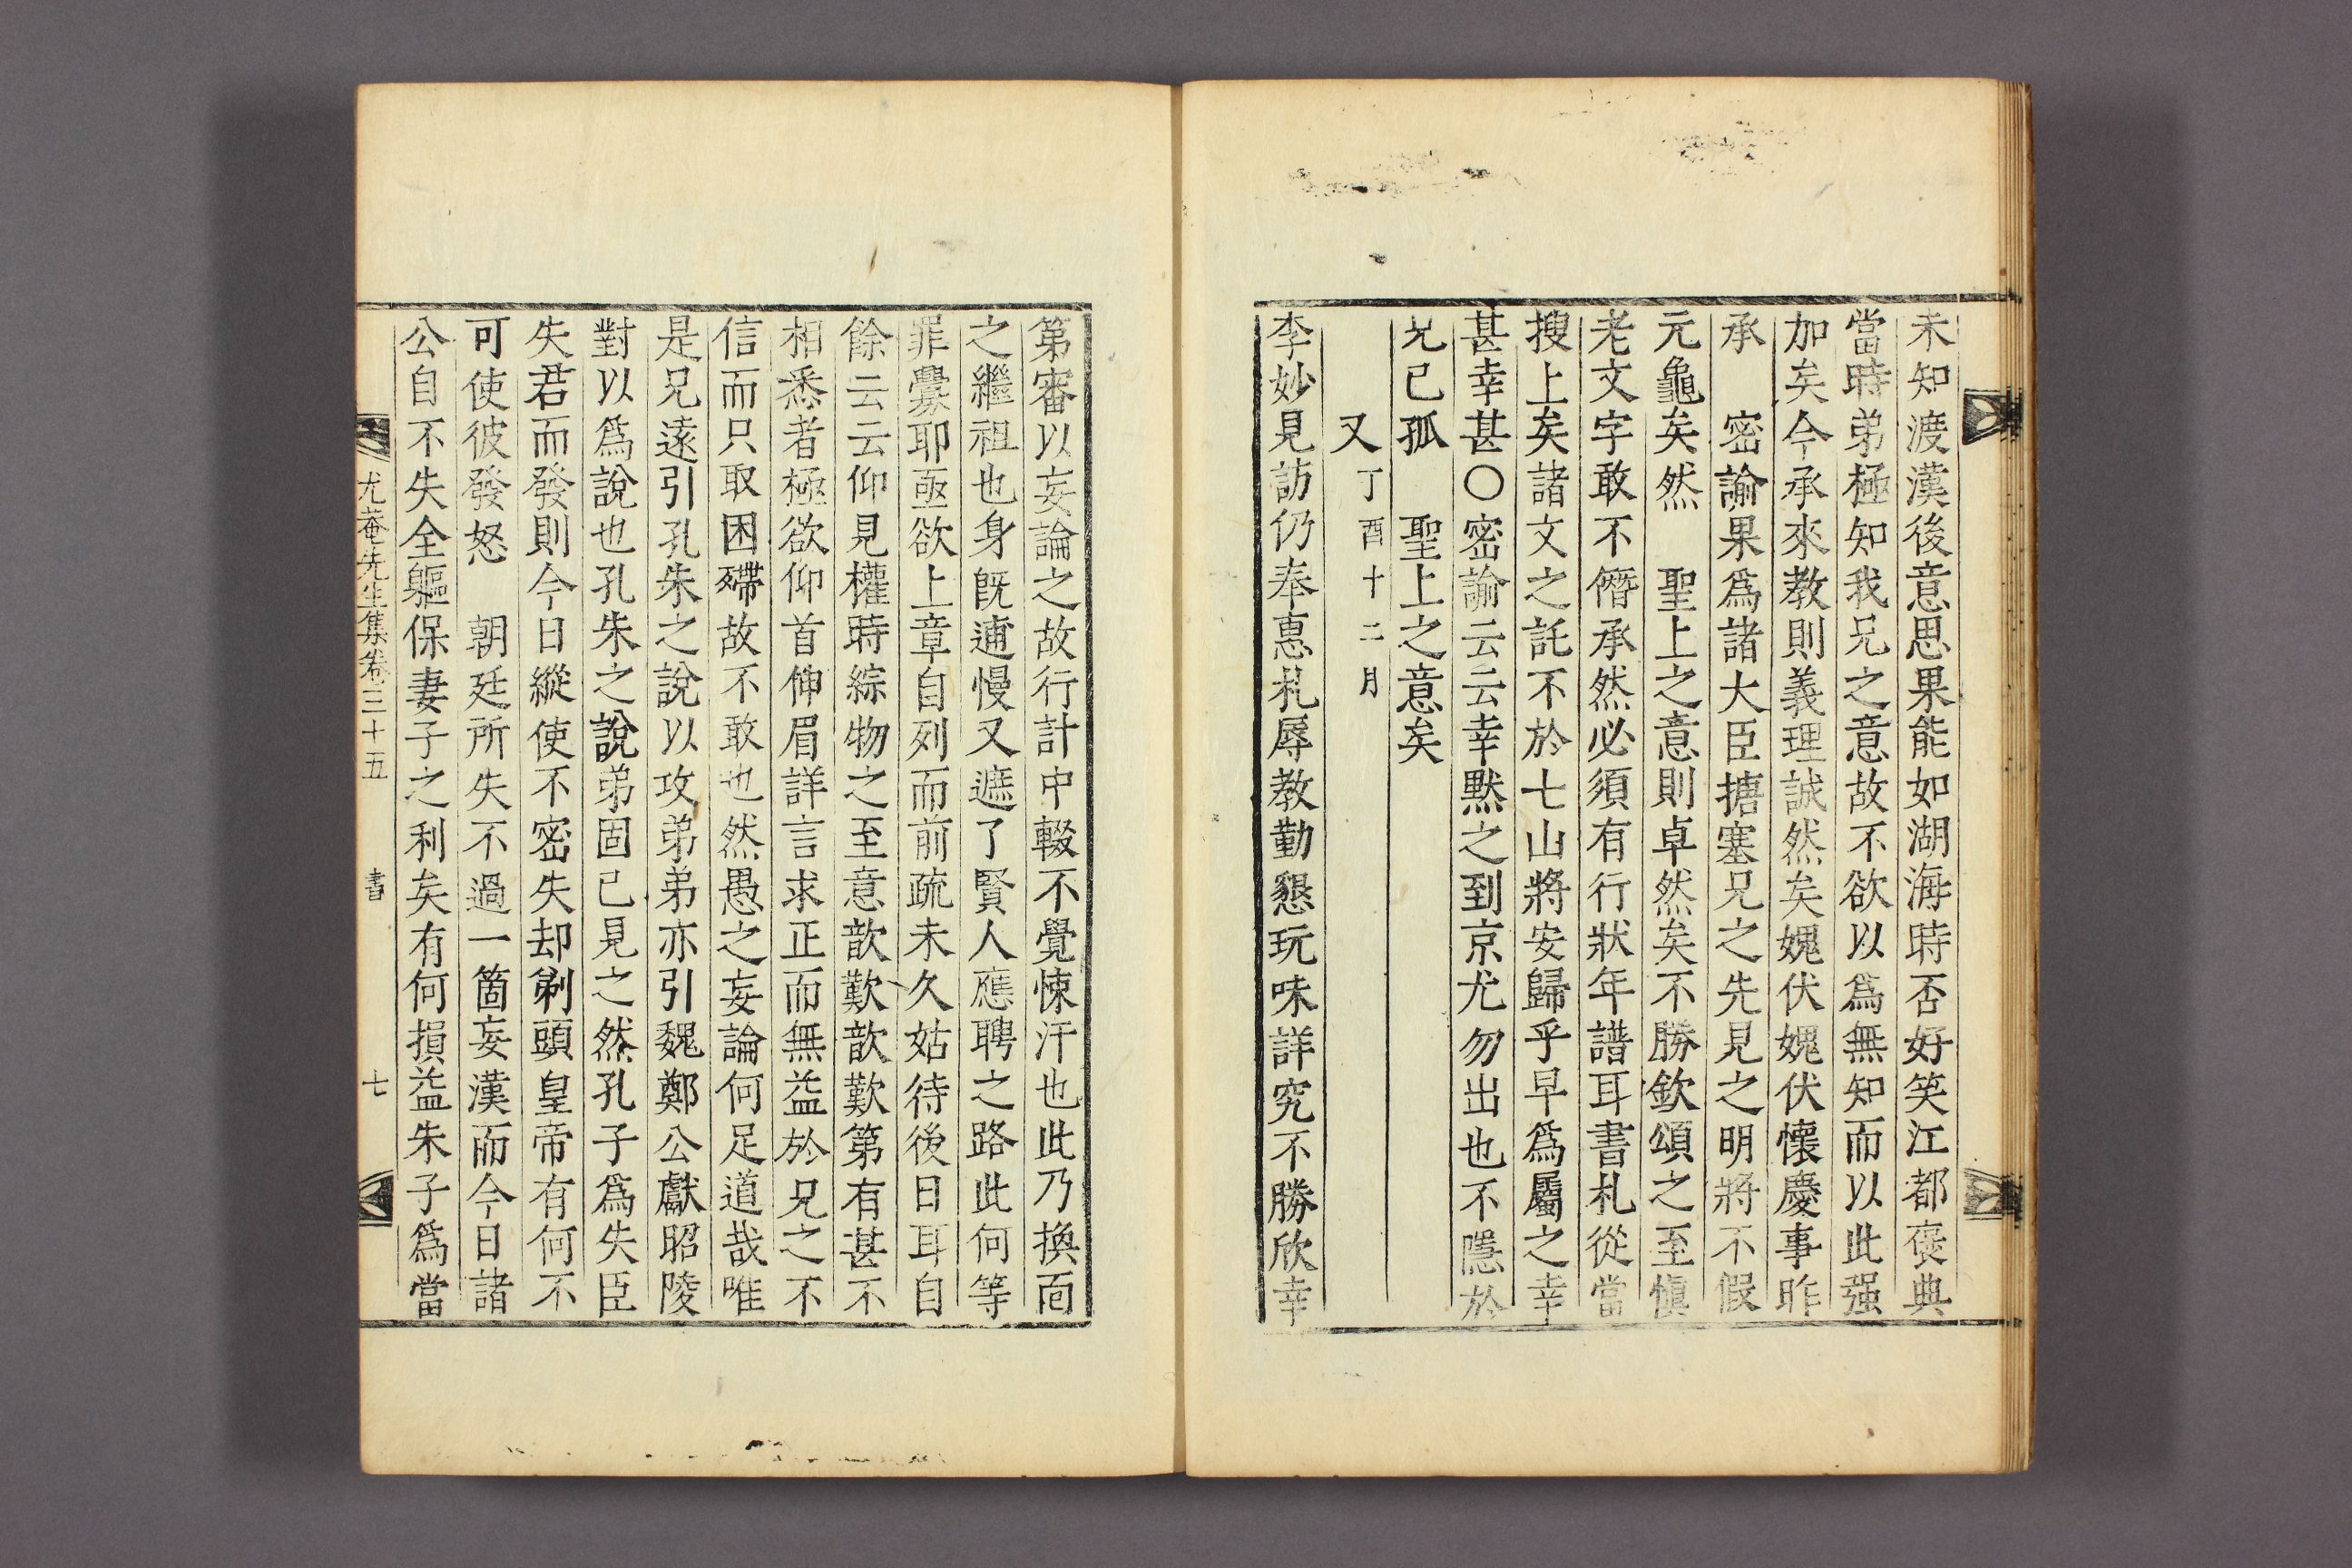 未知渡漢後意思果能如湖海時否好笑江都褒典
當時弟極知我兄之意故不欲以爲無知而以此强
加矣今承來教則義理誠然矣媿伏媿伏懷慶事昨
承 密諭果爲諸大臣搪塞兄之先見之明將不假
元龜矣然 聖上之意則卓然矣不勝欽頌之至愼
老文字敢不僭承然必須有行狀年譜耳書札從當
搜上矣諸文之託不於七山將安歸乎早爲屬之幸
甚幸甚○密諭云云幸默之到京尤勿出也不隱於
兄已孤 聖上之意矣
又丁酉十二月
李妙見訪仍奉惠札辱教勤懇玩味詳究不勝欣幸
第審以妄論之故行計中輟不覺悚汗也此乃換面
之繼祖也身旣逋慢又遮了賢人應聘之路此何等
罪釁耶亟欲上章自列而前疏未久姑待後日耳自
餘云云仰見權時綜物之至意歆歎歆歎第有甚不
相悉者極欲仰首伸眉詳言求正而無益於兄之不
信而只取困殢故不敢也然愚之妄論何足道哉唯
是兄遠引孔朱之說以攻弟弟亦引魏鄭公獻昭陵
對以爲說也孔朱之說弟固已見之然孔子爲失臣
失君而發則今日縱使不密失却剃頭皇帝有何不
可使彼發怒 朝廷所失不過一箇妄漢而今日諸
公自不失全軀保妻子之利矣有何損益朱子爲當
尤菴先生集卷三十五 書 七